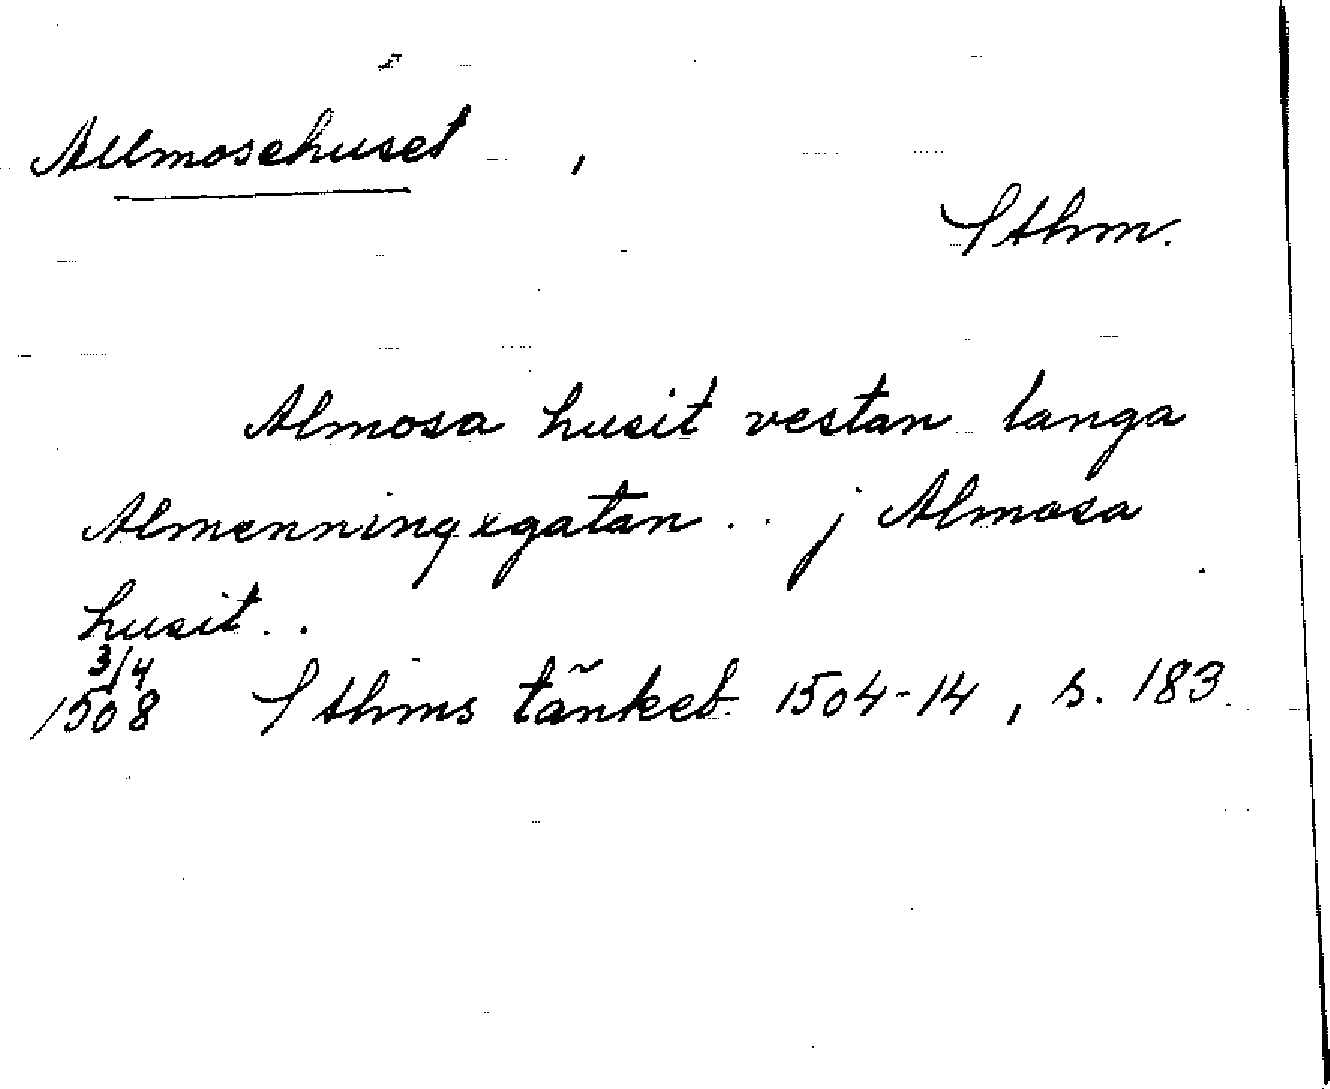 Allmosehuset ,
Sthm.
Almosa husit vestan langa
Almenningxgatan . . j Almosa
husit . .
3/4
1508 Sthms tänkeb 1504-14, s. 183.